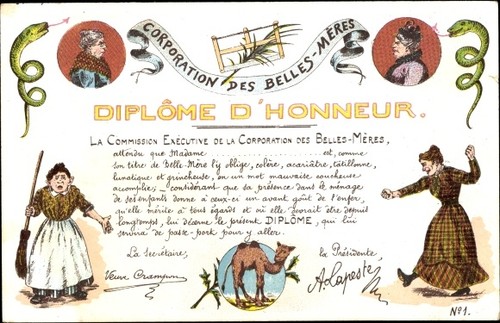 CORPORATION DES BELLES-MÈRES
DIPLÔME D'HONNEUR.
LA COMMISSION EXÉCUTIVE DE LA CORPORATION DES BELLES-MÈRES,
attendu que Madame ........ est, comme
son titre de Belle-Mère l'y oblige, colère, acariâtre, tatillonne,
lunatique et grincheuse, en un mot mauvaise coucheuse
accomplie; considérant que sa présence dans le ménage
de ses enfants donne à ceux-ci un avant goût de l'enfer,
qu'elle mérite à tous égards et où elle devrait être depuis
longtemps, lui décerne le présent DIPLÔME, qui lui
servira de passe-port pour y aller.
La Secrétaire,
la Présidente,
Veuve
A. Lapeste
No1.